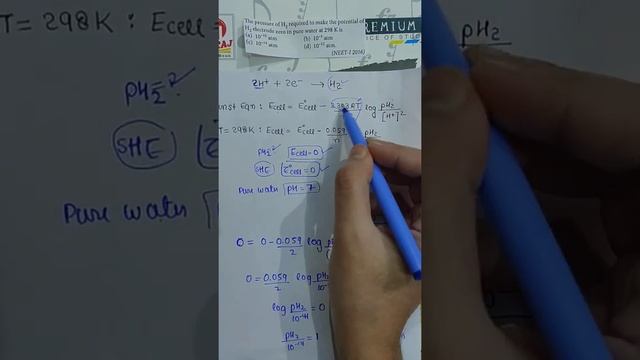 The pressure of H₂ required to make the potential of
H₂ electrode zero in pure water at 298 K is
(a) 10⁻¹⁰ atm (b) 10⁻⁴ atm
(c) 10⁻¹⁴ atm (d) 10⁻¹² atm
(NEET-I 2016)
2H⁺ + 2e⁻ → H₂
nst Eqn : Ecell = E°cell - 2.303RT log pH₂/[H⁺]²
T = 298K : Ecell = E°cell - 0.059/n pH₂
pH₂ = ? Ecell = 0
SHE E°cell = 0
Pure water pH = 7
0 = 0 - 0.059/2 log
0 = 0.059/2 log pH₂/10⁻¹⁴
log pH₂/10⁻¹⁴ = 0
pH₂/10⁻¹⁴ = 1